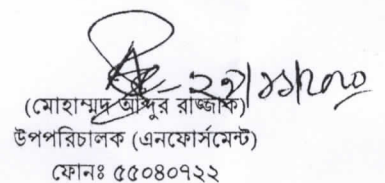 ২৯/১১/২০২০
(মোহাম্মদ আব্দুর রাজ্জাক)
উপপরিচালক (এনফোর্সমেন্ট)
ফোনঃ ৫৫০৪০৭২২